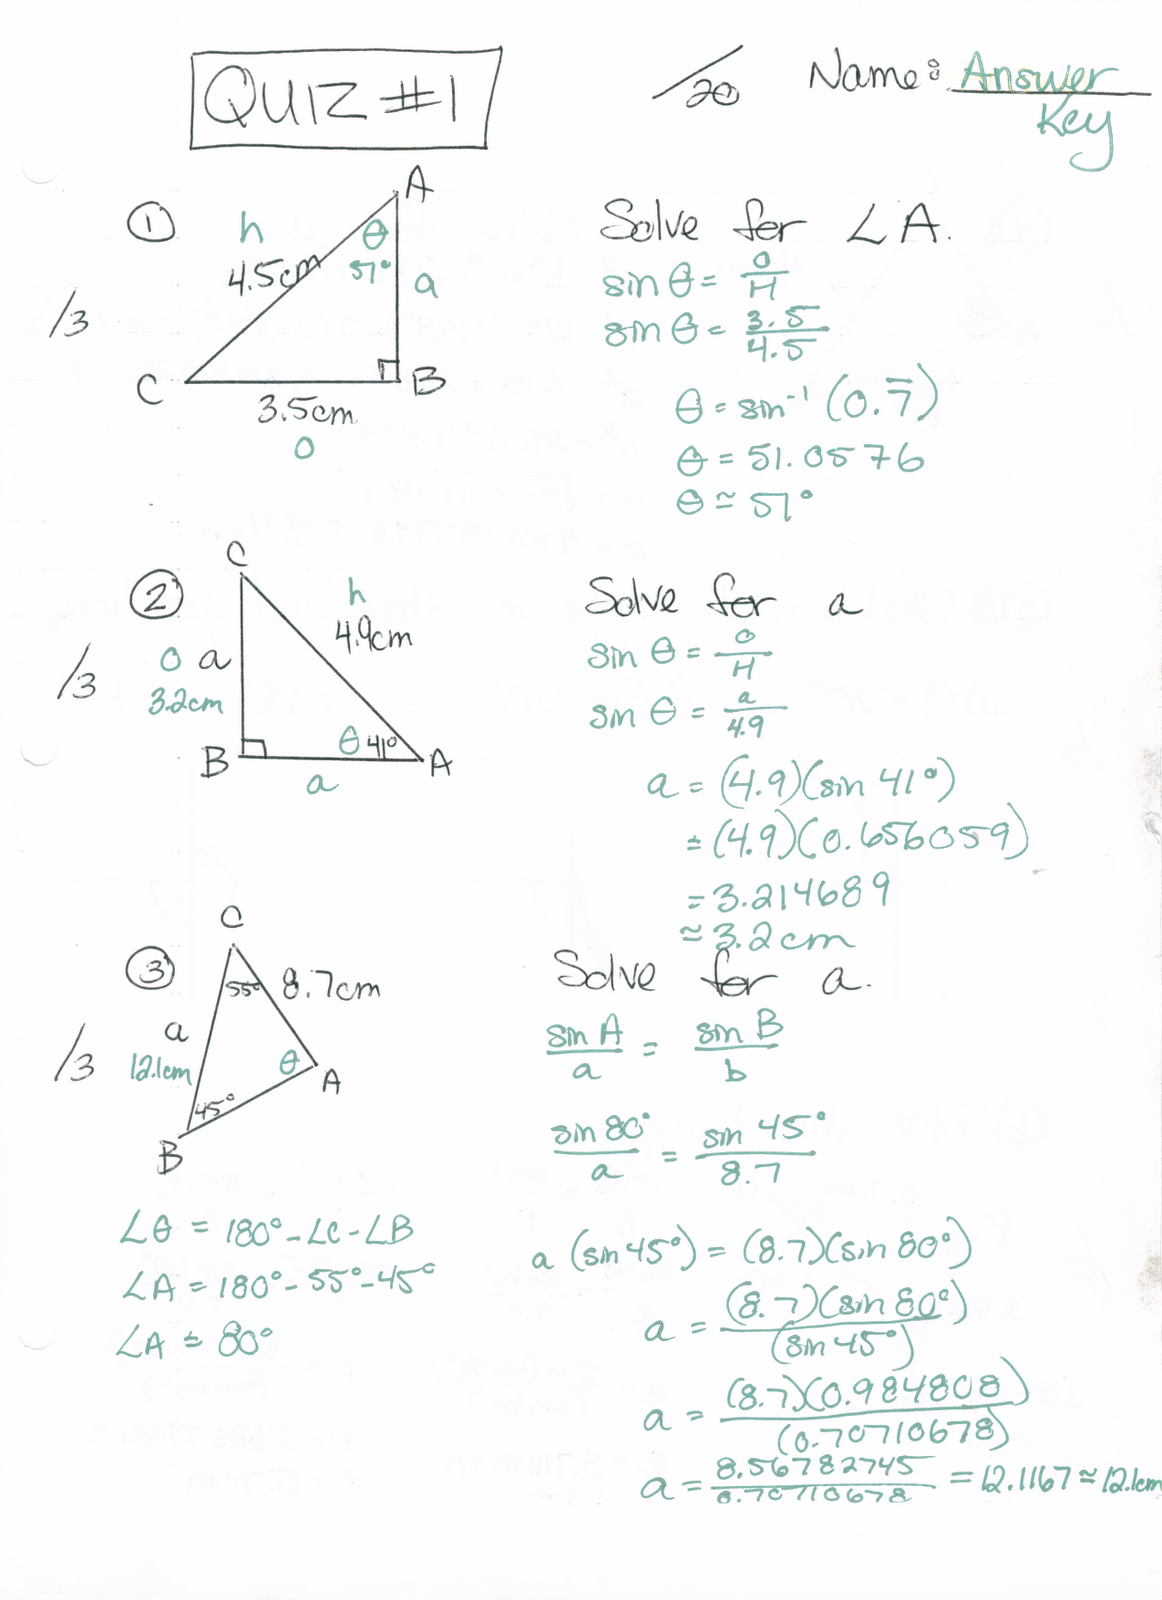 QUIZ #1
/20
Name: Answer Key
① Solve for ∠A.
/3
A
h
4.5cm
θ
57°
a
C
B
3.5cm
o
sin θ = O/H
sin θ = 3.5/4.5
θ = sin⁻¹ (0.7̅)
θ = 51.0576
θ ≃ 51°
② Solve for a
/3
C
h
4.9cm
O a
3.2cm
B
θ 41°
A
a
sin θ = O/H
sin θ = a/4.9
a = (4.9)(sin 41°)
= (4.9)(0.656059)
= 3.214689
≃ 3.2cm
③ Solve for a.
/3
C
55°
8.7cm
a
12.1cm
θ
A
45°
B
sin A/a = sin B/b
sin 80°/a = sin 45°/8.7
∠θ = 180° - ∠C - ∠B
∠A = 180° - 55° - 45°
∠A = 80°
a (sin 45°) = (8.7)(sin 80°)
a = (8.7)(sin 80°)/(sin 45°)
a = (8.7)(0.984808)/(0.70710678)
a = 8.56782745/0.70710678 = 12.1167 ≃ 12.1cm